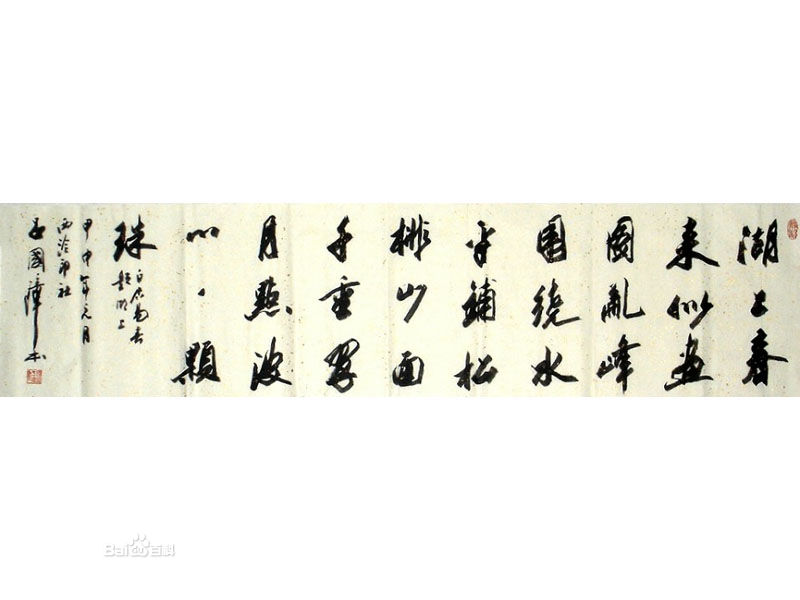 湖上春
来似畫
圖亂峰
圍繞水
平鋪松
排山面
千重翠
月點波
心一顆
珠
白居易春
題湖上
甲申年元月
西泠印社
吕國璋书
Baidu百科